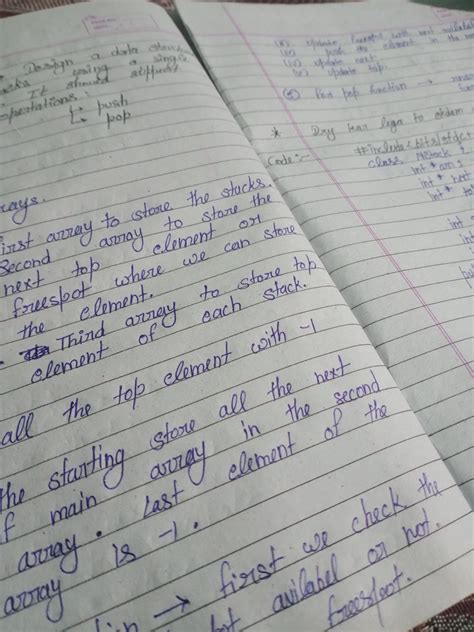 * Design a data
using a single
. It should support
operations.
↳ push
pop
rays.
First array to store the stacks.
Second array to store the
next top element or
freespot where we can store
the element.
Third array to store top
element of each stack.
all the top element with -1
the starting store all the next
f main array in the second
array. Last element of the
array is -1.
→ first we check the
avilabel or not.
freespot.
(ii) update freespot with next
(iii) push the element in the
(iv) update next.
(v) update top.
pop function →
* Dry run
Code:-
#include<bits/stdc
class MStack {
int * arr
int * next
int * to
int
int